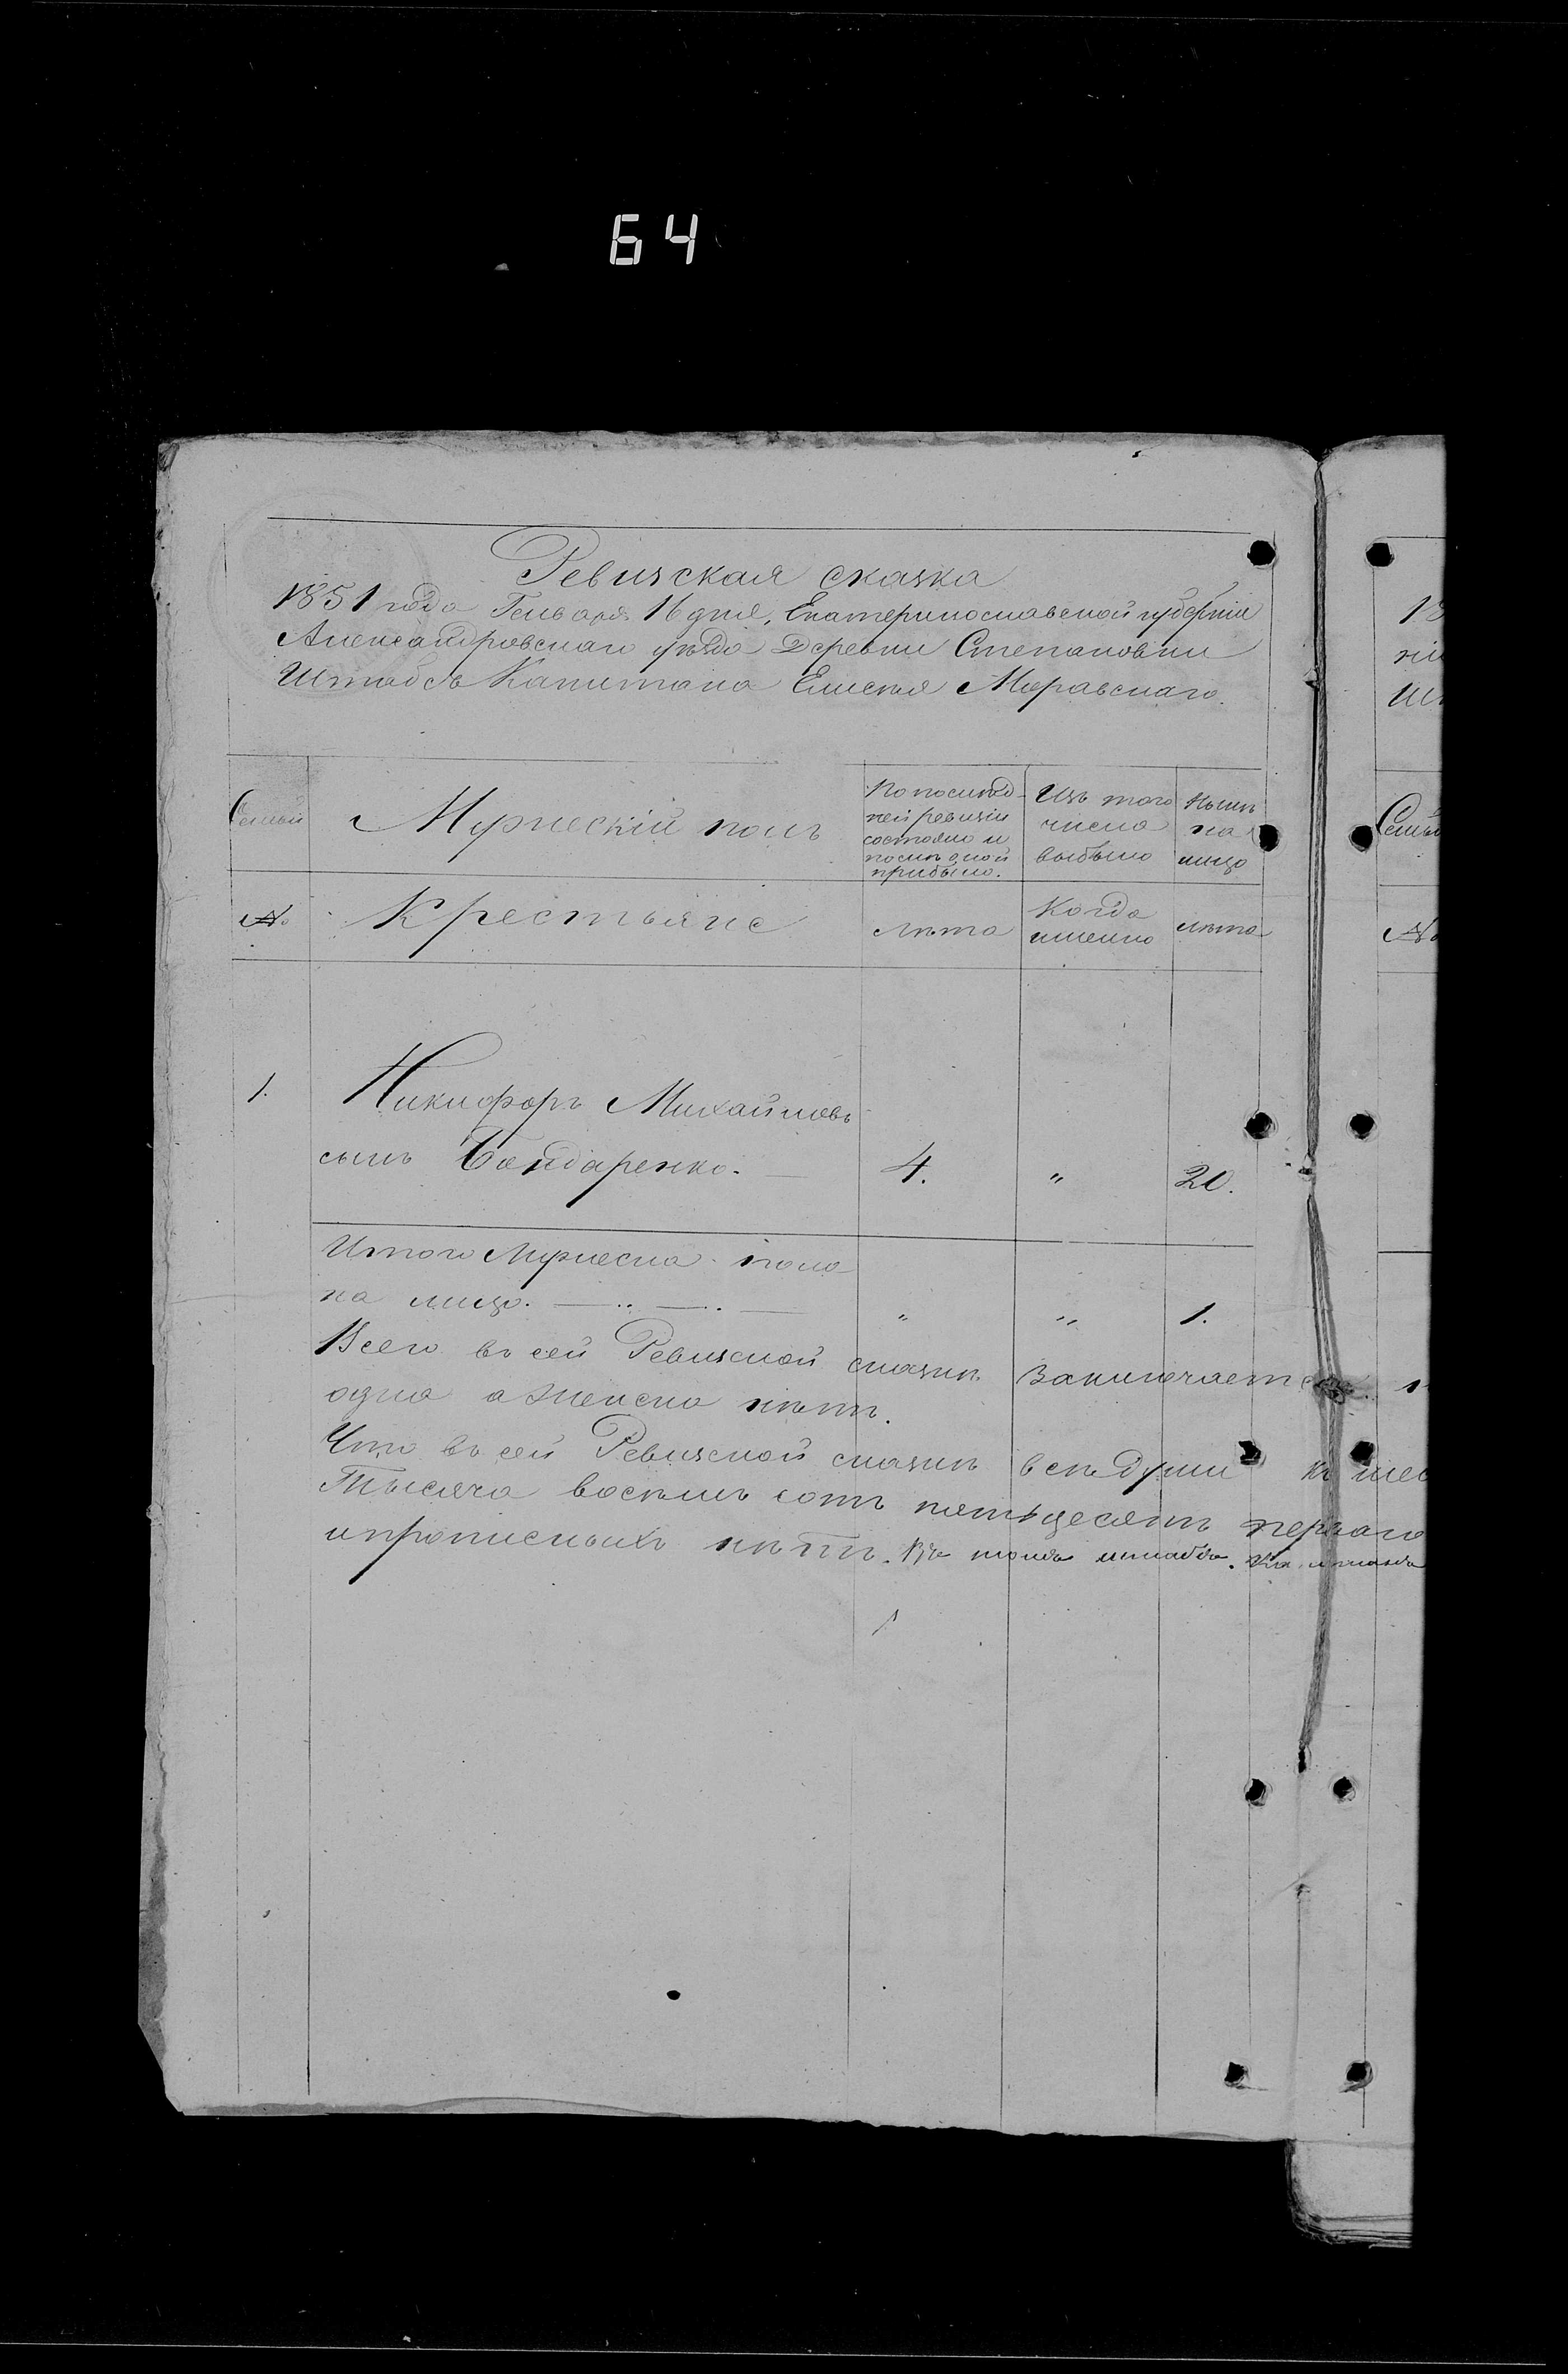 64
Ревизская сказка
1851 года Генваря 16 дня, Екатеринославской губерніи
Александровскаго уѣзда Деревни Степановки
Штабсъ Капитана Елисѣя Моравскаго.
Семьи
Мужескій полъ
По послѣд-
ней ревизіи
состояло и
послѣ оной
прибыло.
Изъ того
числа
выбыло
Нынѣ
на
лицо
№
Крестьяне
лѣта
Когда
именно
лѣта
1.
Никифоръ Михайловъ
сынъ Бондаренко. — 4. " 20.
Итого Мужеска пола
на лицо. — " " 1.
Всего въ сей Ревизской сказкѣ Заключаетс
одна а женска нѣтъ.
Что въ сей Ревизской сказкѣ всѣ души
Тысяча восемь сотъ пятьдесятъ перваго
ипрописныхъ нѣтъ.
18
Шт
Семьи
№